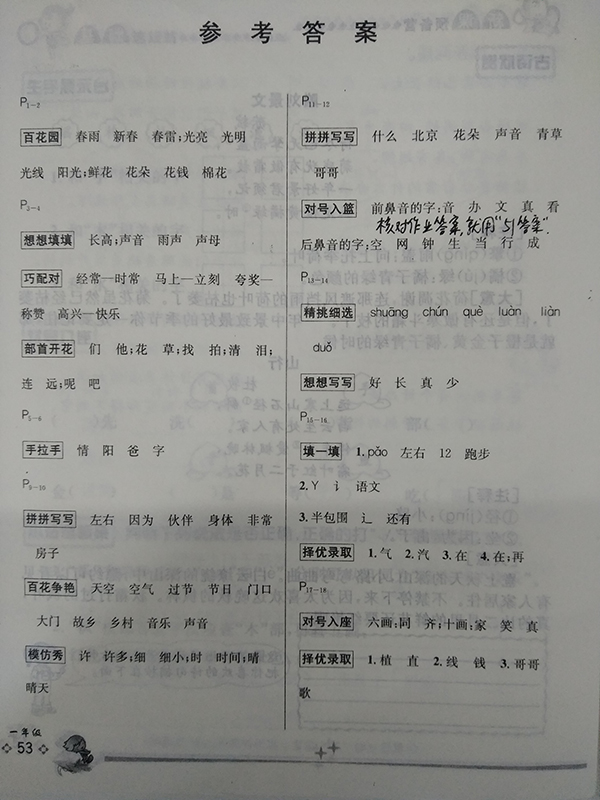 参考答案
P1-2
百花园 春雨 新春 春雷;光亮 光明
光线 阳光;鲜花 花朵 花钱 棉花
P3-4
想想填填 长高;声音 雨声 声母
巧配对 经常—时常 马上—立刻 夸奖—
称赞 高兴—快乐
部首开花 们 他;花 草;找 拍;清 泪;
连 远;呢 吧
P5-6
手拉手 情 阳 爸 字
P9-10
拼拼写写 左右 因为 伙伴 身体 非常
房子
百花争艳 天空 空气 过节 节日 门口
大门 故乡 乡村 音乐 声音
模仿秀 许 许多;细 细小;时 时间;晴
晴天
一年级
53
P11-12
拼拼写写 什么 北京 花朵 声音 青草
哥哥
对号入篮 前鼻音的字;音 办 文 真 看
核对作业答案,就用"51答案".
后鼻音的字;空 网 钟 生 当 行 成
P13-14
精挑细选 shuāng chún què luàn liàn
duǒ
想想写写 好 长 真 少
P15-16
填一填 1.pǎo 左右 12 跑步
2.Y 讠 语文
3.半包围 辶 还有
择优录取 1.气 2.汽 3.在 4.在;再
P17-18
对号入座 六画:同 齐;十画:家 笑 真
择优录取 1.植 直 2.线 钱 3.哥哥
歌